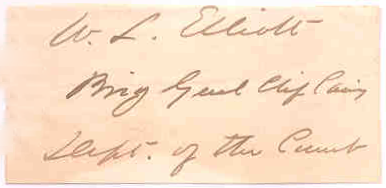 W. L. Elliott
Brig Genl Chf Cav
Dept. of the Cumb